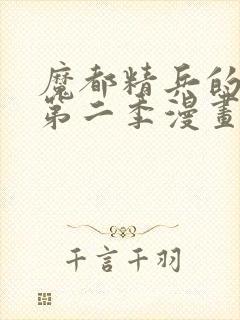 魔都精兵的
第二季漫畫
千言千羽